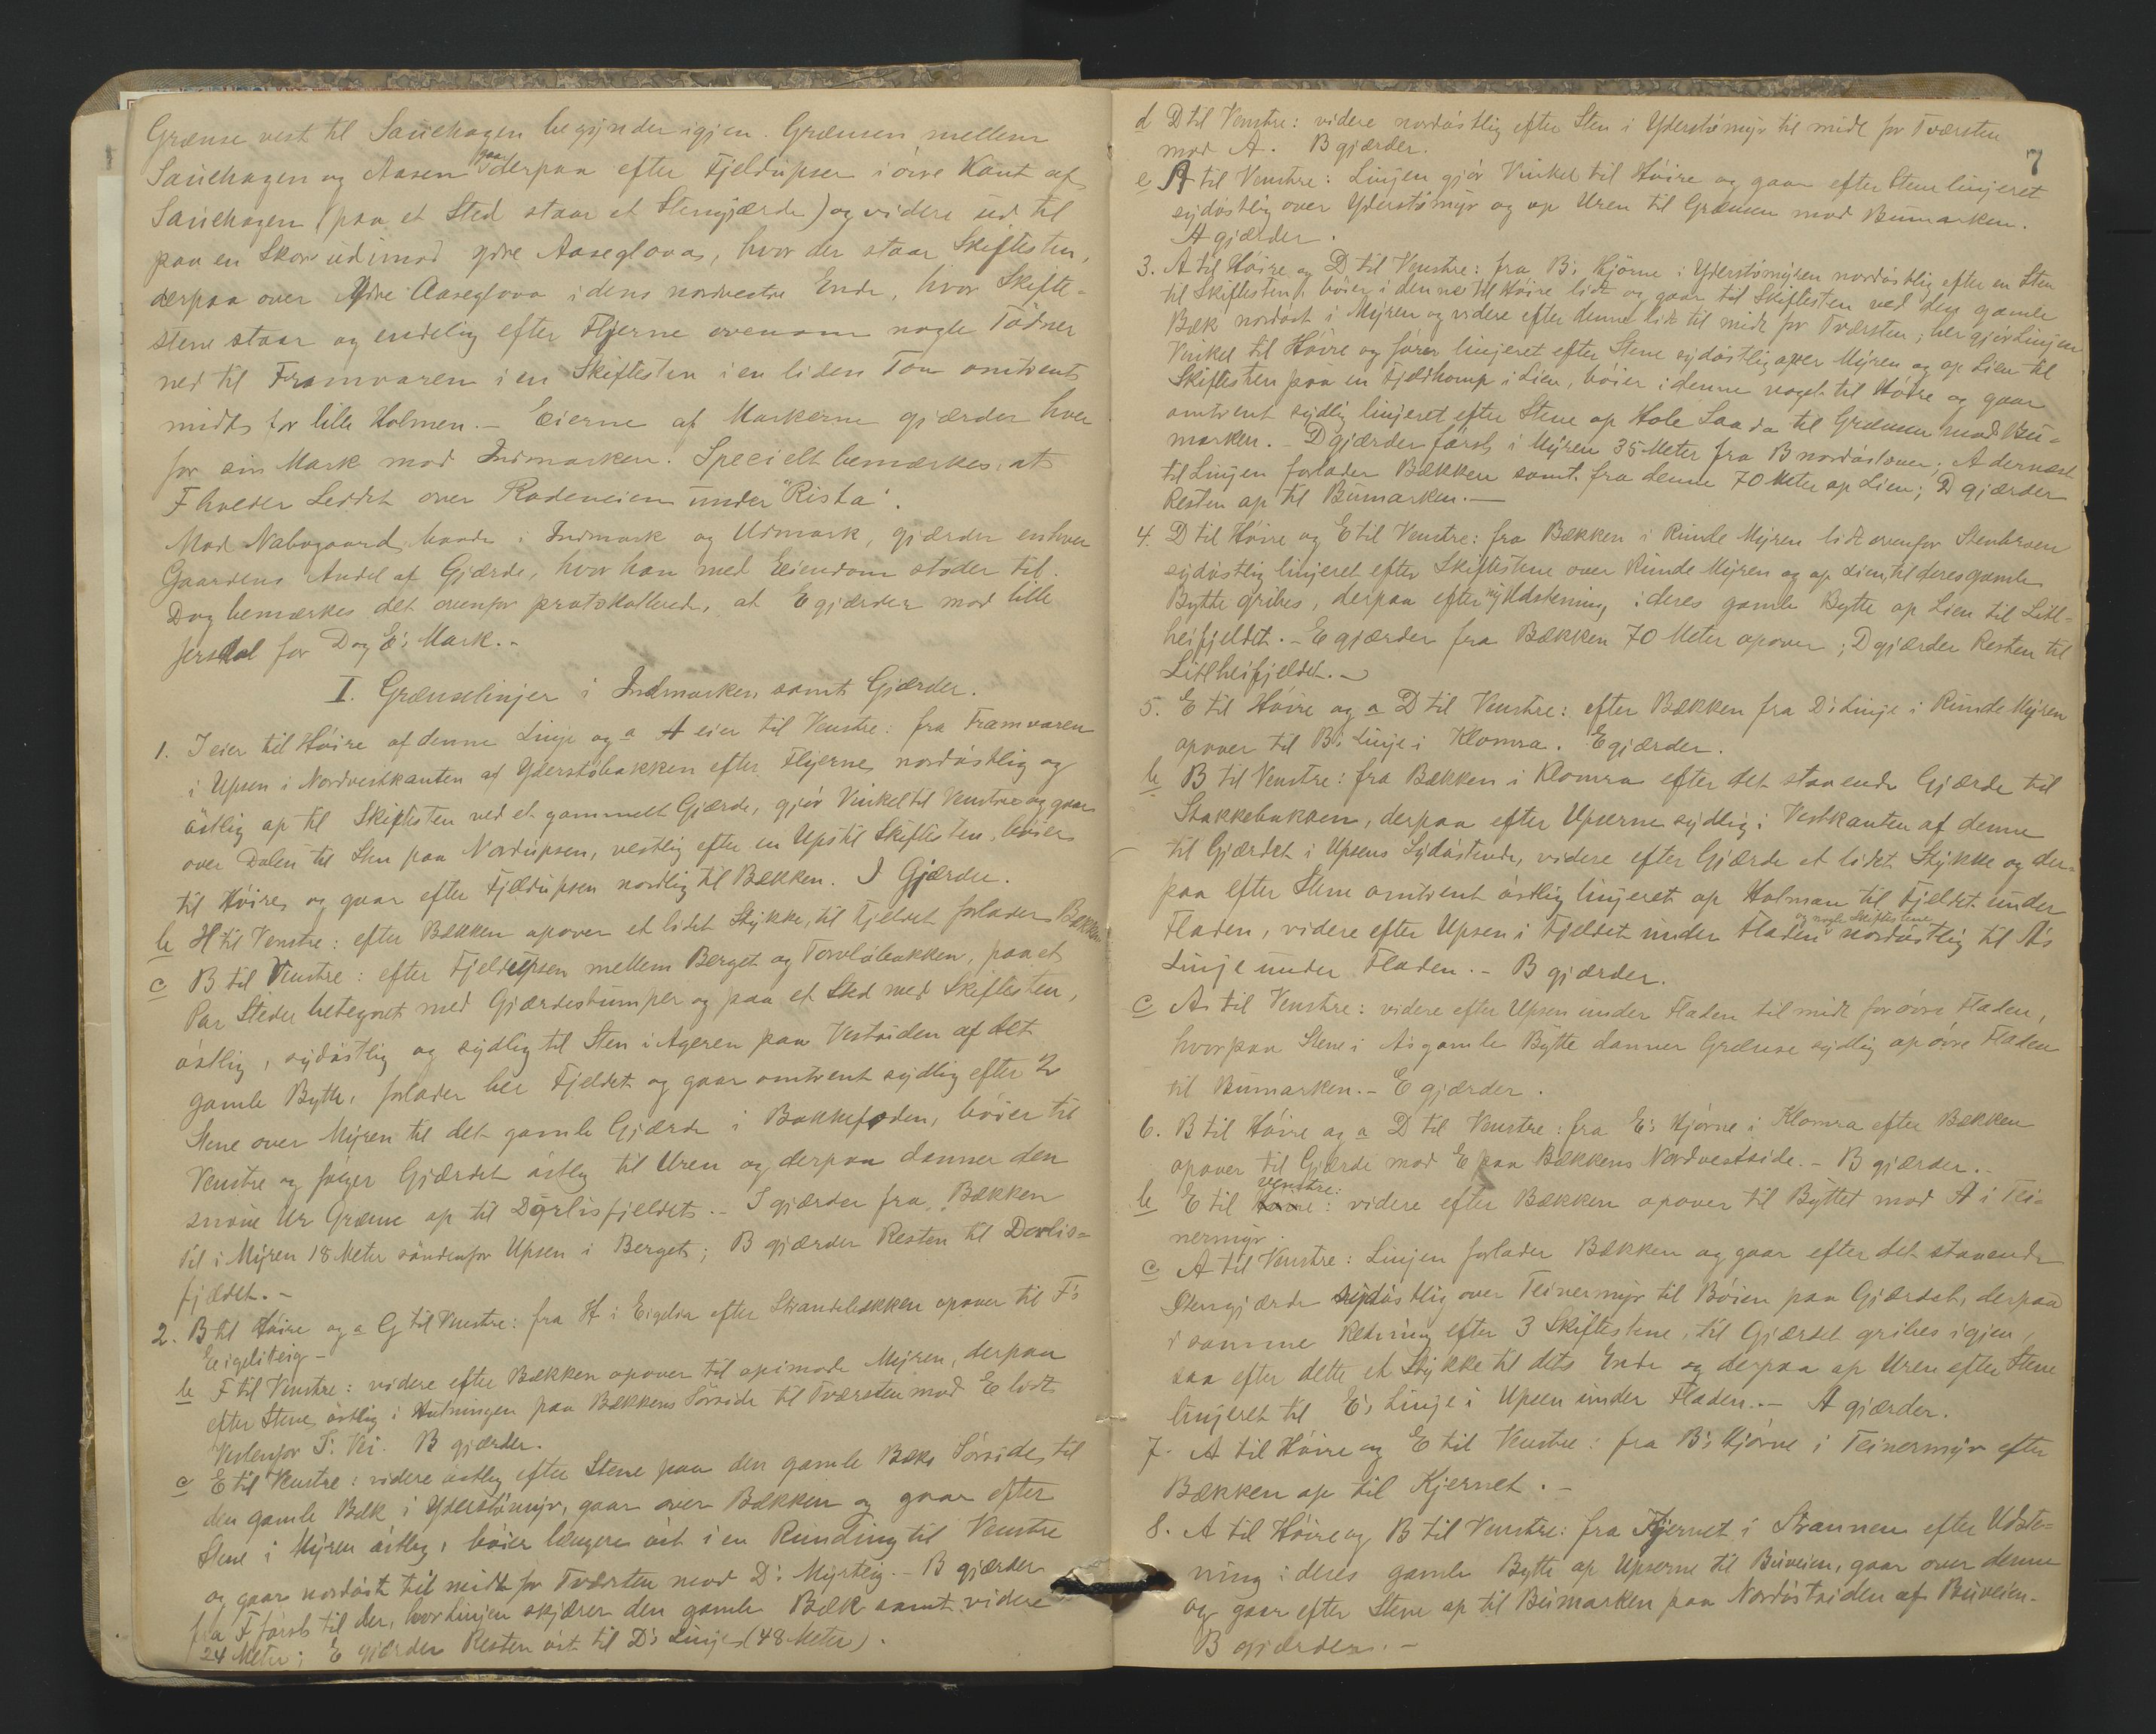 Grænse vest til Sauehagen begynder igjen. Grænsen mellem
Sauehagen og Aasen gaar derpaa efter Fjeldupsen i øvre Kant af
Sauehagen (paa et Sted staar et Stengjærde) og videre ud til
paa en Skor udimod ydre Aaseglova, hvor der staar Skiftesten,
derpaa over Ydre Aaseglova i dens nordvestre Ende, hvor Skifte-
stene staar og endelig efter Fljerne ovenom nogle Tødner
ned til Framvaren i en Skiftesten i en liden Ton omtrent
midt for lille Holmen. - Eierne af Markerne gjærder hver
for sin Mark mod Indmarken. Specielt bemærkes, at
F holder Leddet over Rodeveien under "Rista".
Mod Nabogaard, baade i Indmark og Udmark, gjærder enhver
Gaardens Andel af Gjærde, hvor han med Eiendom støder til.
Dog bemærkes det ovenfor protokollerede, at E gjærder mod lille
Jersdal for D og E's Mark. -
I. Grænselinjer i Indmarken samt Gjærder.
1. I eier til Høire af denne Linje og a A eier til Venstre: fra Framvaren
i Upsen i Nordvestkanten af Yderstøbakken efter Fljerne nordøstlig og
østlig op til Skiftesten ved et gammelt Gjærde, gjør Vinkel til Venstre og gaar
over Dalen til Sten paa Nordupsen, vestlig efter en Ups til Skiftesten, bøier
til Høire og gaar efter Fjeldupsen nordlig til Bækken. I Gjærder.
b H til Venstre: efter Bækken opover et lidet Stykke, til Fjeldet forlader Bækken
c B til Venstre: efter Fjeldupsen mellem Berget og Torvløbakken, paa et
Par Steder betegnet med Gjærdestumper og paa et Sted med Skiftesten,
østlig, sydøstlig og sydlig til Sten i Ageren paa Vestsiden af det
gamle Bytte, forlader her Fjeldet og gaar omtrent sydlig efter 2
Stene over Myren til det gamle Gjærde i Bakkefoden, bøier til
Venstre og følger Gjærdet østlig til Uren og derpaa danner den
snaue Ur Grænse op til Dørlisfjeldet. - I gjærder fra Bækken
til i Myren 18 Meter søndenfor Upsen i Berget; B gjærder Resten til Dørlis-
fjeldet. -
2. B til Høire og a G til Venstre: fra H i Eigelia efter Strandebækken opover til F's
Eigeliteig -
b F til Venstre: videre efter Bækken opover til opimod Myren, derpaa
efter Stene østlig i paa Bækkens Sørside til Tværsten mod E lidt
Vestenfor I's Vei. B gjærder.
c E til Venstre: videre østlig efter Stene paa den gamle Bæks Sørside, til
den gamle Bæk i Yderstømyr, gaar over Bækken og gaar efter
Stene i Myren østlig, bøier længere øst i en Runding til Venstre
og gaar nordøst til midt for Tværsten mod D's Myrteig. - B gjærder
fra F først til der, hvor Linjen skjærer den gamle Bæk samt videre
24 Meter; E gjærder Resten øst til D's Linje (48 Meter).
7
d D til Venstre: videre nordøstlig efter Sten i Yderstømyr til midt for Tværsten
mod A. B gjærder.
e A til Venstre: Linjen gjør Vinkel til Høire og gaar efter Sten linjeret
sydøstlig over Yderstømyr og op Uren til Grænsen mod Bumarken.
A gjærder.
3. A til Høire og D til Venstre: fra B's Hjørne i Yderstømyren nordøstlig efter en Sten
til Skiftesten, bøier i denne til Høire lidt og gaar til Skiftesten ved den gamle
Bæk nordøst i Myren og videre efter denne lidt til midt for Tværsten; her gjør Linjen
Vinkel til Høire og fører linjeret efter Stene sydøstlig over Myren og op Lien til
Skiftesten paa en Fjeldkamp i Lien, bøier i denne noget til Høire og gaar
omtrent sydlig linjeret efter Stene op Hole Laada til Grænsen mod Bu-
marken. - D gjærder først i Myren 35 Meter fra B nordøstover; A dernæst
til Linjen forlader Bækken samt fra denne 70 Meter op Lien; D gjærder
Resten op til Bumarken. -
4. D til Høire og E til Venstre: fra Bækken i Runde Myren lidt ovenfor Stenbroen
sydøstlig linjeret efter Skiftestene over Runde Myren og op Lien, til deres gamle
Bytte gribes, derpaa efter ny Udstening i deres gamle Bytte op Lien til Litl-
heifjeldet. - E gjærder fra Bækken 70 Meter opover; D gjærder Resten til
Litlheifjeldet. -
5. E til Høire og a D til Venstre: efter Bækken fra D's Linje i Runde Myren
opover til B's Linje i Klomra. E gjærder.
b B til Venstre: fra Bækken i Klomra efter det staaende Gjærde til
Stakkebakken, derpaa efter Upserne sydlig i Vestkanten af denne
til Gjærdet i Upsens Sydøstende, videre efter Gjærde et lidet Stykke og der-
paa efter Stene omtrent østlig linjeret op Holman til Fjeldet under
Fladen, videre efter Upsen i Fjeldet under Fladen og nogle Skiftestene nordøstlig til A's
Linje under Fladen. - B gjærder.
c A til Venstre: videre efter Upsen under Fladen til midt for øvre Fladen,
hvorpaa Stene i A's gamle Bytte danner Grænse sydlig op øvre Fladen
til Bumarken. - E gjærder.
6. B til Høire og a D til Venstre: fra E's Hjørne i Klomra efter Bækken
opover til Gjærde mod E paa Bækkens Nordvestside. - B gjærder. -
b E til venstre: videre efter Bækken opover til Byttet mod A i Tei-
nermyr.
c A til Venstre: Linjen forlader Bækken og gaar efter det staaende
Stengjærde sydøstlig over Teinermyr til Bøien paa Gjærdet, derpaa
i samme Retning efter 3 Skiftestene, til Gjærdet gribes igjen,
saa efter dette et Stykke til dets Ende og derpaa op Uren efter Stene
linjeret til E's Linje i Upsen under Fladen. - A gjærder.
7. A til Høire og E til Venstre: fra B's Hjørne i Teinermyr efter
Bækken op til Kjernet. -
8. A til Høire og B til Venstre: fra Kjernet i Straumen efter Udste-
ning i deres gamle Bytte op Upserne til Buveien, gaar over denne
og gaar efter Stene op til Bumarken paa Nordøstsiden af Buveien.
B gjærder. -